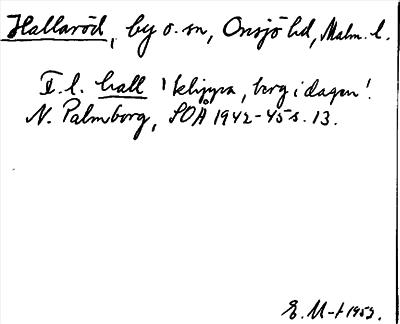 Hallaröd, by o. sn, Onsjö hd, Malm. l.
F. l. hall 'klippa, berg i dagen'.
N. Palmborg, SOÅ 1942-45 s. 13.
E. M-t 1959.